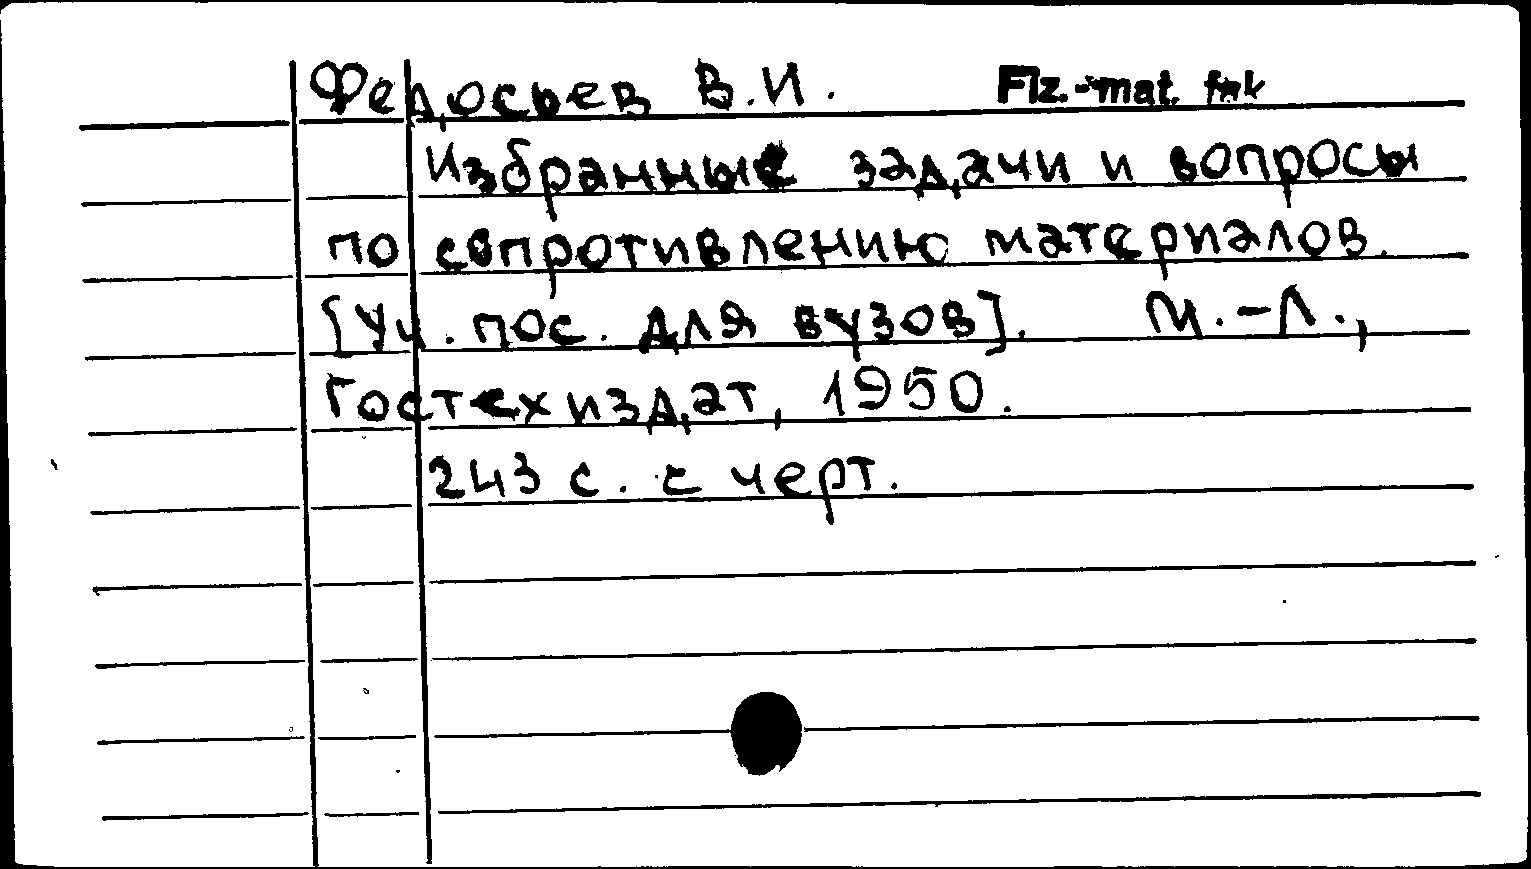 Федосьев В.И. Fiz.-mat. fak
Избранные задачи и вопросы
по сопротивлению материалов.
[Уч. пос. для вузов]. М.-Л.,
Гостехиздат, 1950.
243 с. с черт.